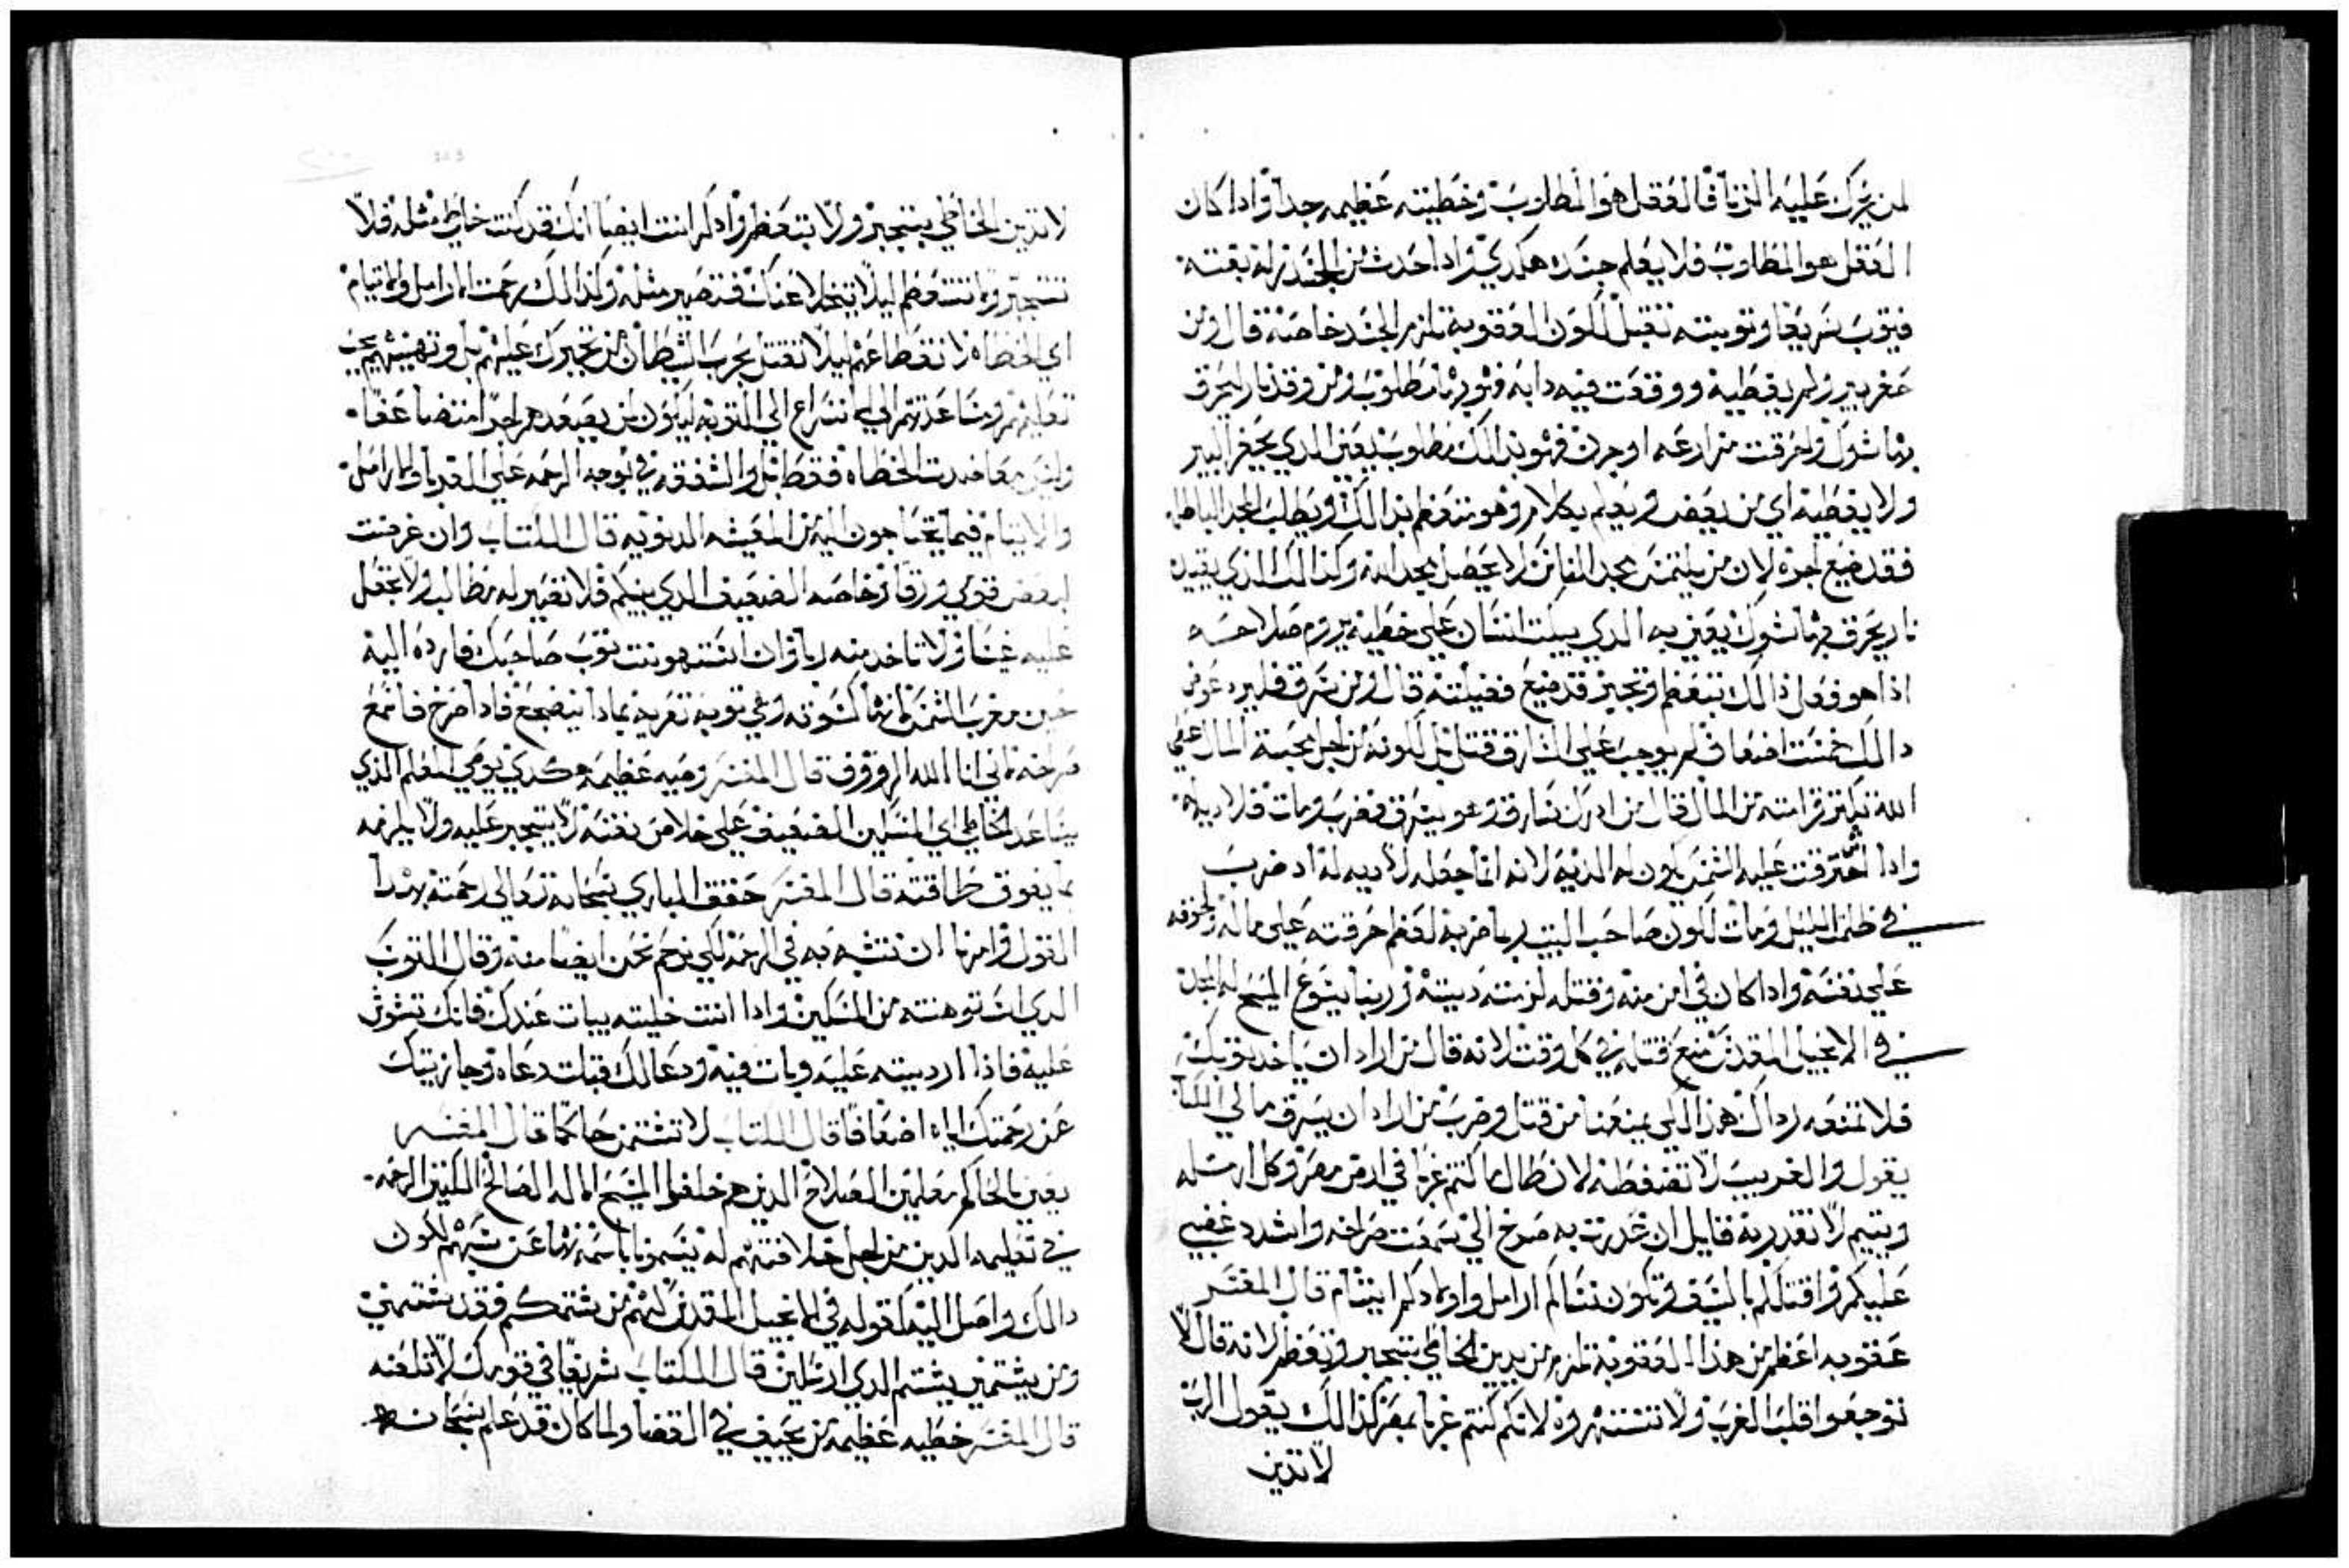 لمن يحرك عليه الزنا فالعقل هو المطلوب وخطيته عظيمه جدا واذا كان
العقل هو المطلوب فلا يعلم جسده هكدي واذا حدث من الجسد زله بغتة
فيتوب سريعا وتوبته تقبل لكون العقوبة تلزم الجسد خاصة قال ومن
حفر بير ولم يغطيه ووقعت فيه دابه فهو بها مطلوب ومن وقد نار ليحرق
بها شوك واحرقت مزارعه او جرن فهو بدالك مطلوب يعني الدي يحفر البير
ولا يغطيه اي من يعض ويعلم بكلام وهو متعظم بدالك ويطلب المجد الباطل
فقد ضيع اجره لان من يلتمس مجد الناس لا يحصل مجد الله وكذالك الذي يقيد
نار يحرق بها شوك يعني به الدي يبكت انسان علي خطية يروم صلاحه
اذا هو فعل ذالك بتعظم وتجبر قد ضيع فضيلته قال ومن سرق فليرد عوض
دالك خمست اضعاف لم يوجب علي السارق قتل بل لكونه من اجل محبة المال عصي
الله تكتر غرامته من المال قال من ادرك سارق وهو يسرق فضربه ومات فلا دية له
واذا اشرقت عليه الشمس يكون له الدية لانه انما جعله لا دية له اد ضرب
في ظلام الليل ومات لكون صاحب البيت ربما ضربه لعظم حرقته علي ماله ولخوفه
علي نفسه واذا كان في امن منه وقتله لزمته ديته وربنا يسوع المسيح له المجد
في الانجيل المقدس منع قتله في كل وقت لانه قال من اراد ان ياخد توبك
فلا تمنعه رداك هذا لكي يمنعنا من قتل وضرب من اراد ان يسرق مالي الكتاب
يقول والغريب لا تضغطه لان طال ما كنتم غربا في ارض مصر وكل ارمله
ويتيم لا تغدر به قايل ان غدرت به صرخ الي سمعت صراخه واشدد غضبي
عليكم واقتلكم بالسيف وتكون نساكم ارامل واولادكم ايتام قال المفسر
عقوبه اعظم من هذا العقوبة تلزم من يدين الخاطي بتجبر وتعظم لانه قال لا
توجعوا قلب الغريب ولا تنتهروه لانكم كنتم غربا بمصر كذالك يقول الرب
لا تدين
لا تدين الخاطي بتجبر ولا بتعظم واذكر انت ايضا انك قد كنت خاطي مثله فلا
تتجبر ولا تتعظم ليلا يتخلا عنك فتصير مثله وكذالك رحمت الارامل والايتام
اي الخطاه لا تغطا عنهم ليلا تقتل بحرب الشيطان من تجبرك عليهم بل وتهينهم يجب
تعليمهم ومساعدتهم الي الاسراع الي التوبه ليكون لمن يصعدهم اجرا متضاعفا
وليس معاضدت الخطاه فقط بل والشفقه في توجه الرحمه علي الغربا والارامل
والايتام فيما يحتاجون اليه من المعيشه الدنويه قال الكتاب وان عرضت
لبعض قومي ورقا وخاصه الضعيف الدي بينكم فلا تصير له مطالب ولا تجعل
عليه غصا ولا تاخد منه ربا وان استرهنت توب صاحبك فارده اليه
حين مغرب الشمس لانها كسوته وهي توبه تعريه بمادا ينضجع فادا صرخ فاسمع
صراخه لاني انا الله الرووف قال المفسر وصيه عظيمه هكدي يوصي المعلم الذي
يساعد الخاطي اي المسكين الضعيف علي خلاص نفسه لا يتجبر عليه ولا يلزمه
بما يفوق طاقته قال المفسر حقق الباري سبحانه وتعالي رحمته بهدا
القول وامرنا ان نتشبه به في الرحمه لكي نرحم نحن ايضا منه وقال التوب
الدي استرهنته من المسكين وادا انت خليته يبات عندك فانك تشوش
عليه فاذا ارديته عليه وبات فيه ودعا لك قبلت دعاه وجازيتك
عن رحمتك اياه اضعافا قال الكتاب لا تشتمن حاكما قال المفسر
يعني بالحاكم معلمين الصلاح الدين هم خلفوا المسيح الاله الصالح الكتير الرحمه
في تعليمه الدين من اجل خلافتهم له يتسموا باسمه نها عن سبهم لكون
دالك واصل اليه كقوله في الانجيل المقدس لهم من شتمكم فقد شتمني
ومن يشتمني يشتم الدي ارسلني قال الكتاب شريفا في قومك لا تلعنه
قال المفسر خطيه عظيمه من يحيف في القضا ولما كان قد علم سبحانه